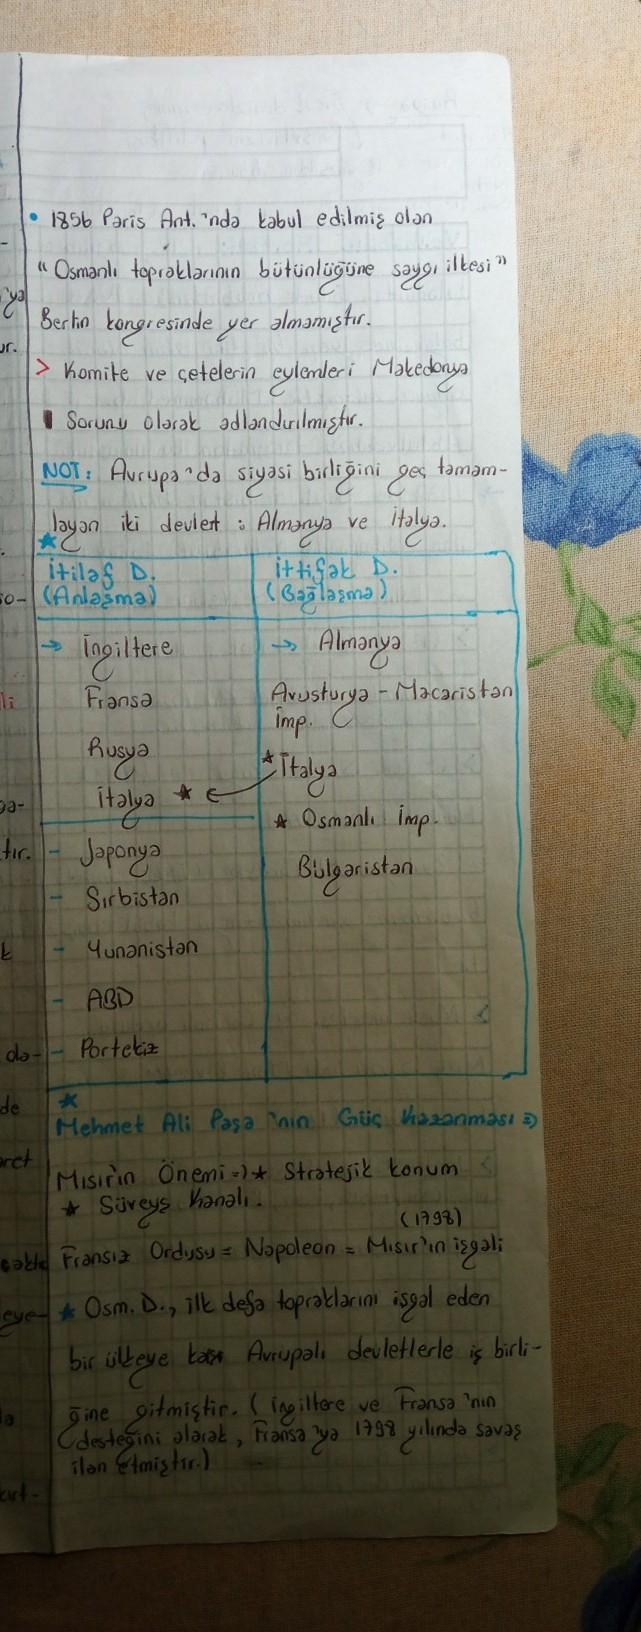 • 1856 Paris Ant.'nda kabul edilmiş olan
"Osmanlı topraklarının bütünlüğüne saygı ilkesi"
Berlin kongresinde yer almamıştır.
> Komite ve çetelerin eylemleri Makedonya
Sorunu olarak adlandırılmıştır.
NOT: Avrupa'da siyasi birliğini geç tamam-
layan iki devlet : Almanya ve İtalya.
İtilaf D.
(Anlaşma)
→ İngiltere
Fransa
Rusya
İtalya ★ ←
- Japonya
- Sırbistan
- Yunanistan
- ABD
- Portekiz
İttifak D.
(Bağlaşma)
→ Almanya
Avusturya - Macaristan
İmp.
★ İtalya
★ Osmanlı İmp.
Bulgaristan
★
Mehmet Ali Paşa'nın Güç Kazanması =)
Mısır'ın Önemi =) ★ Stratejik konum
★ Süveyş Kanalı.
(1798)
Fransız Ordusu = Napoleon = Mısır'ın işgali
★ Osm. D., ilk defa topraklarını işgal eden
bir ülkeye Avrupalı devletlerle iş birli-
ğine gitmiştir. (İngiltere ve Fransa'nın
desteğini alarak, Fransa'ya 1798 yılında savaş
ilan etmiştir.)